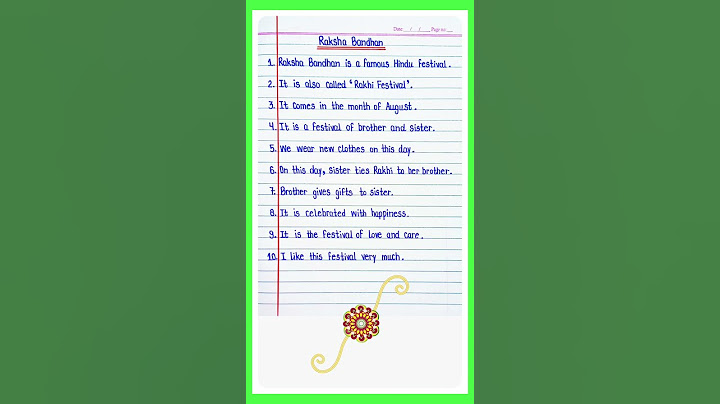 Date __/__/____ Page no __
Raksha Bandhan
1. Raksha Bandhan is a famous Hindu festival.
2. It is also called 'Rakhi Festival'.
3. It comes in the month of August.
4. It is a festival of brother and sister.
5. We wear new clothes on this day.
6. On this day, sister ties Rakhi to her brother.
7. Brother gives gifts to sister.
8. It is celebrated with happiness.
9. It is the festival of love and care.
10. I like this festival very much.